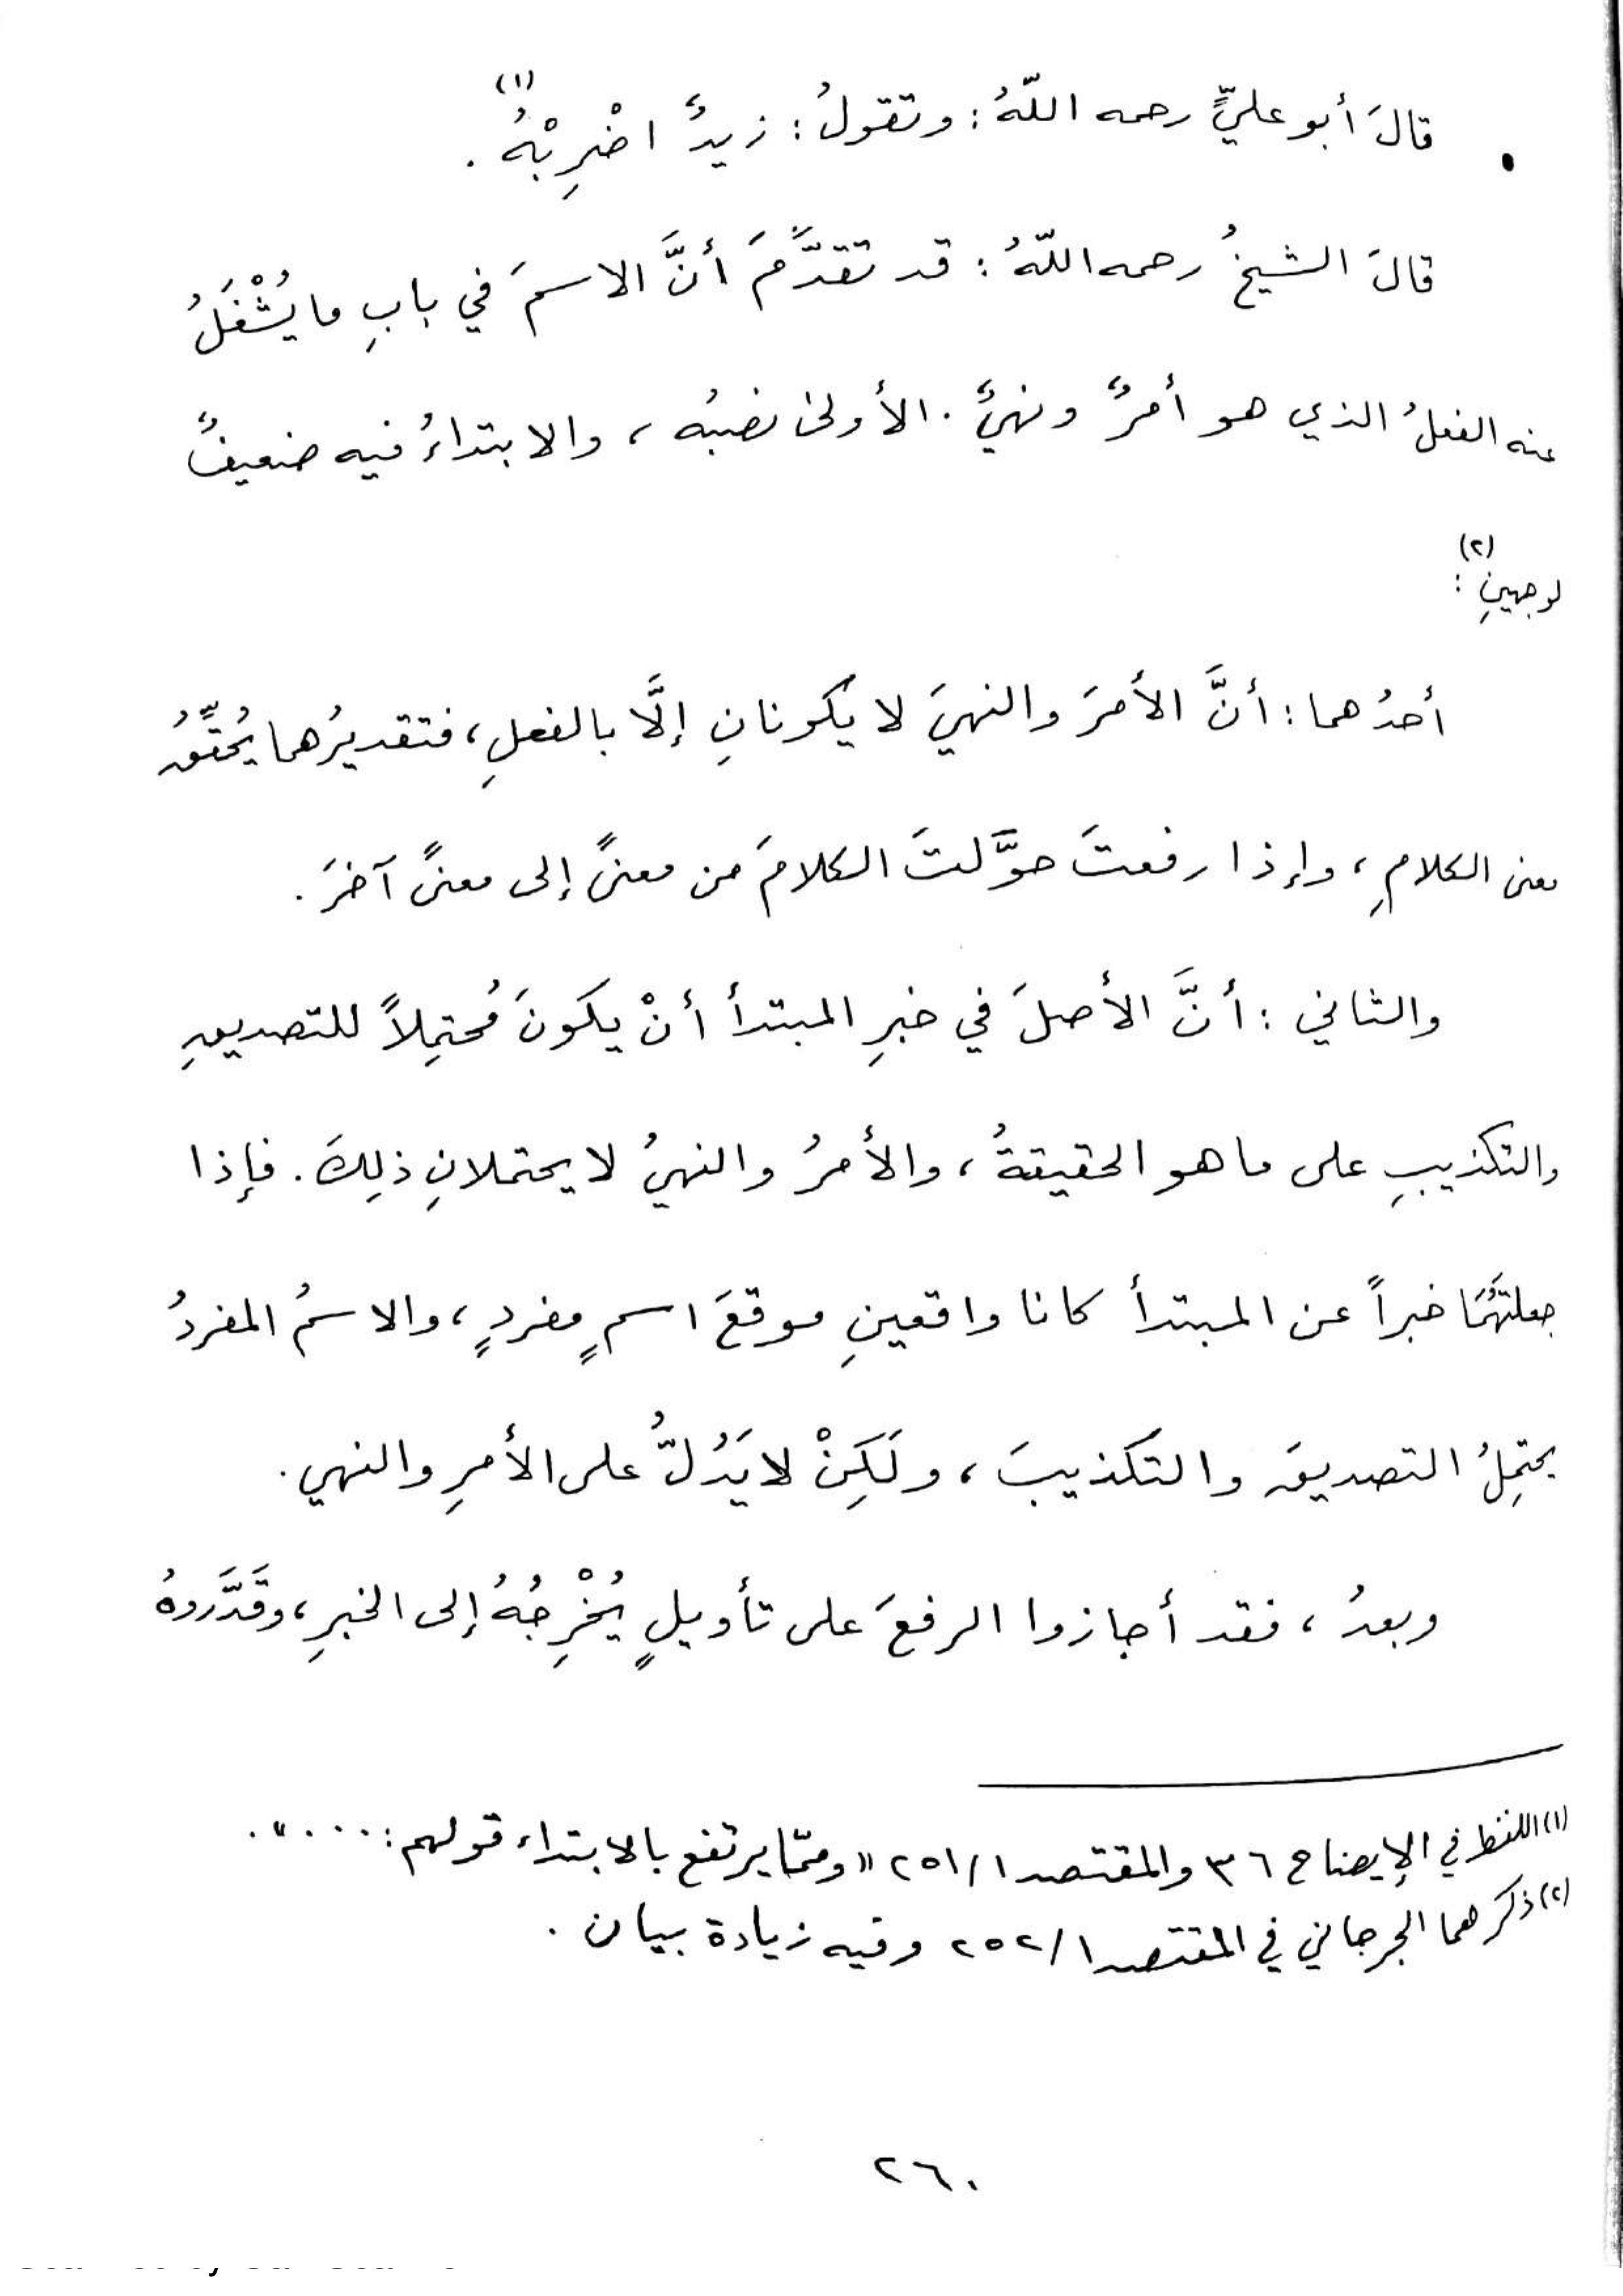 • قالَ أبو عليٍّ رحمه اللّهُ : وتقولُ : زيدٌ اضْرِبْهُ (١) .
قالَ الشيخُ رحمه اللّهُ : قد تقدَّمَ أنَّ الاسمَ في بابِ ما يُشْغَلُ
عنه الفعلُ الذي هو أمرٌ ونهيٌ . الأولىٰ نصبُه ، والابتداءُ فيه ضعيفٌ
لوجهينِ (٢) :
أحدُهما : أنَّ الأمرَ والنهيَ لا يكونانِ إلَّا بالفعلِ ، فتقديرُهما يُحقِّقُ
معنى الكلامِ ، وإذا رفعتَ حوَّلتَ الكلامَ من معنىً إلى معنىً آخرَ .
والثاني : أنَّ الأصلَ في خبرِ المبتدأ أنْ يكونَ مُحتمِلاً للتصديقِ
والتكذيبِ على ما هو الحقيقةُ ، والأمرُ والنهيُ لا يحتملانِ ذلِكَ . فإذا
جعلتَهُمَا خبراً عن المبتدأ كانا واقعينِ موقعَ اسمٍ مفردٍ ، والاسمُ المفردُ
يحتمِلُ التصديقَ والتكذيبَ ، ولَكِنْ لا يَدُلُّ على الأمرِ والنهي .
وبعدُ ، فقد أجازوا الرفعَ على تأويلٍ يُخْرِجُهُ إلى الخبرِ ، وقَدَّروهُ
(١) اللفظ في الإيضاح ٣٦ والمقتصد ٢٥١/١ "وممّا يرتفع بالابتداء قولهم : ...." .
(٢) ذكرهما الجرجاني في المقتصد ٢٥٢/١ وفيه زيادة بيان .
٢٦٠